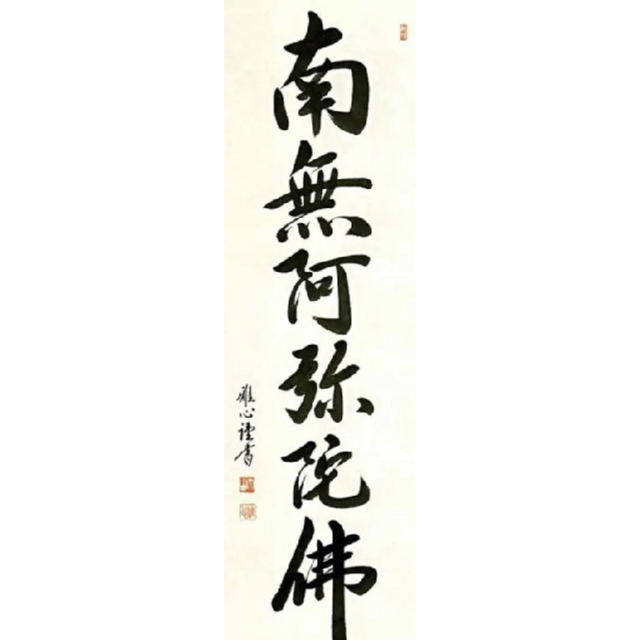 南無阿弥陀佛
心謹書